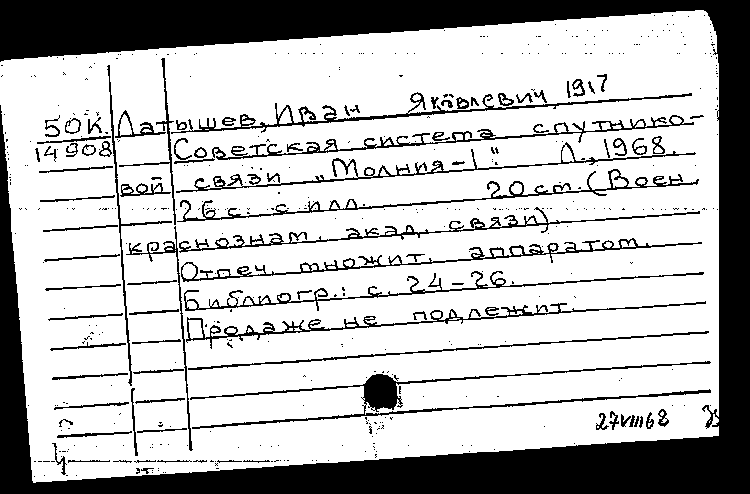 50К. Латышев, Иван Яковлевич, 1917
14908 Советская система спутнико-
вой связи „Молния-1". Л., 1968.
26 с. с илл. 20 ст. (Воен.
краснознам. акад. связи).
Отпеч. множит. аппаратом.
Библиогр.: с. 24-26.
Продаже не подлежит.
27VIII68